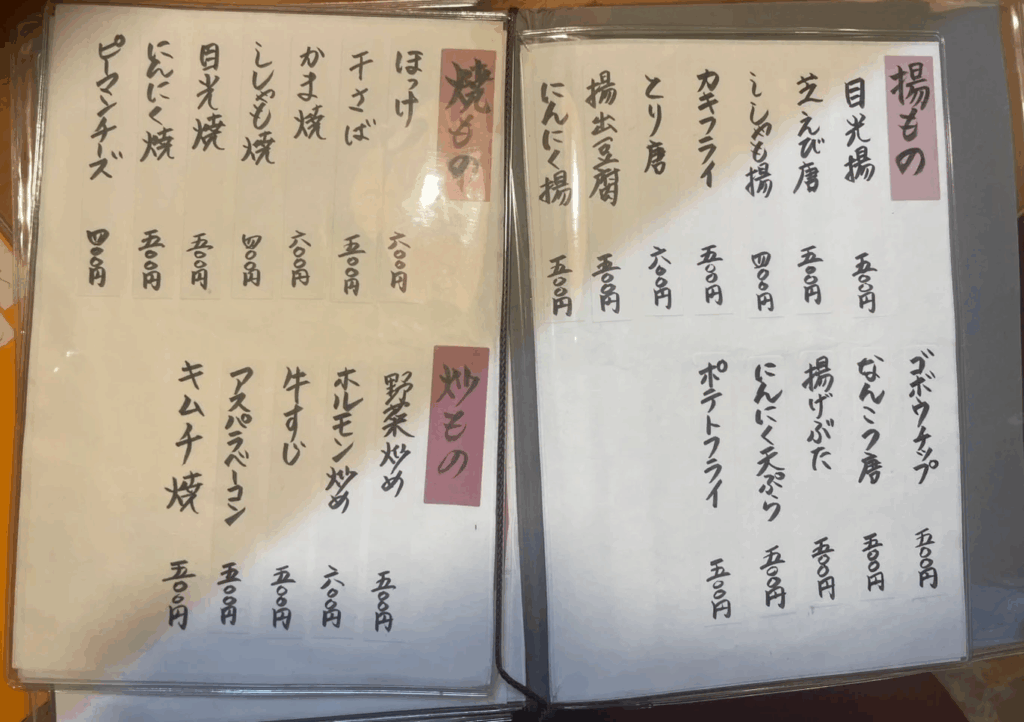 揚もの
目光揚 五〇〇円
芝えび唐 五〇〇円
ししゃも揚 四〇〇円
カキフライ 五〇〇円
とり唐 六〇〇円
揚出豆腐 五〇〇円
にんにく揚 五〇〇円
ゴボウチップ 五〇〇円
なんこつ唐 五〇〇円
揚げぶた 五〇〇円
にんにく天ぷら 五〇〇円
ポテトフライ 五〇〇円
焼もの
ほっけ 六〇〇円
干さば 五〇〇円
かま焼 六〇〇円
ししゃも焼 四〇〇円
目光焼 五〇〇円
にんにく焼 五〇〇円
ピーマンチーズ 四〇〇円
炒もの
野菜炒め 五〇〇円
ホルモン炒め 六〇〇円
牛すじ 五〇〇円
アスパラベーコン 五〇〇円
キムチ焼 五〇〇円